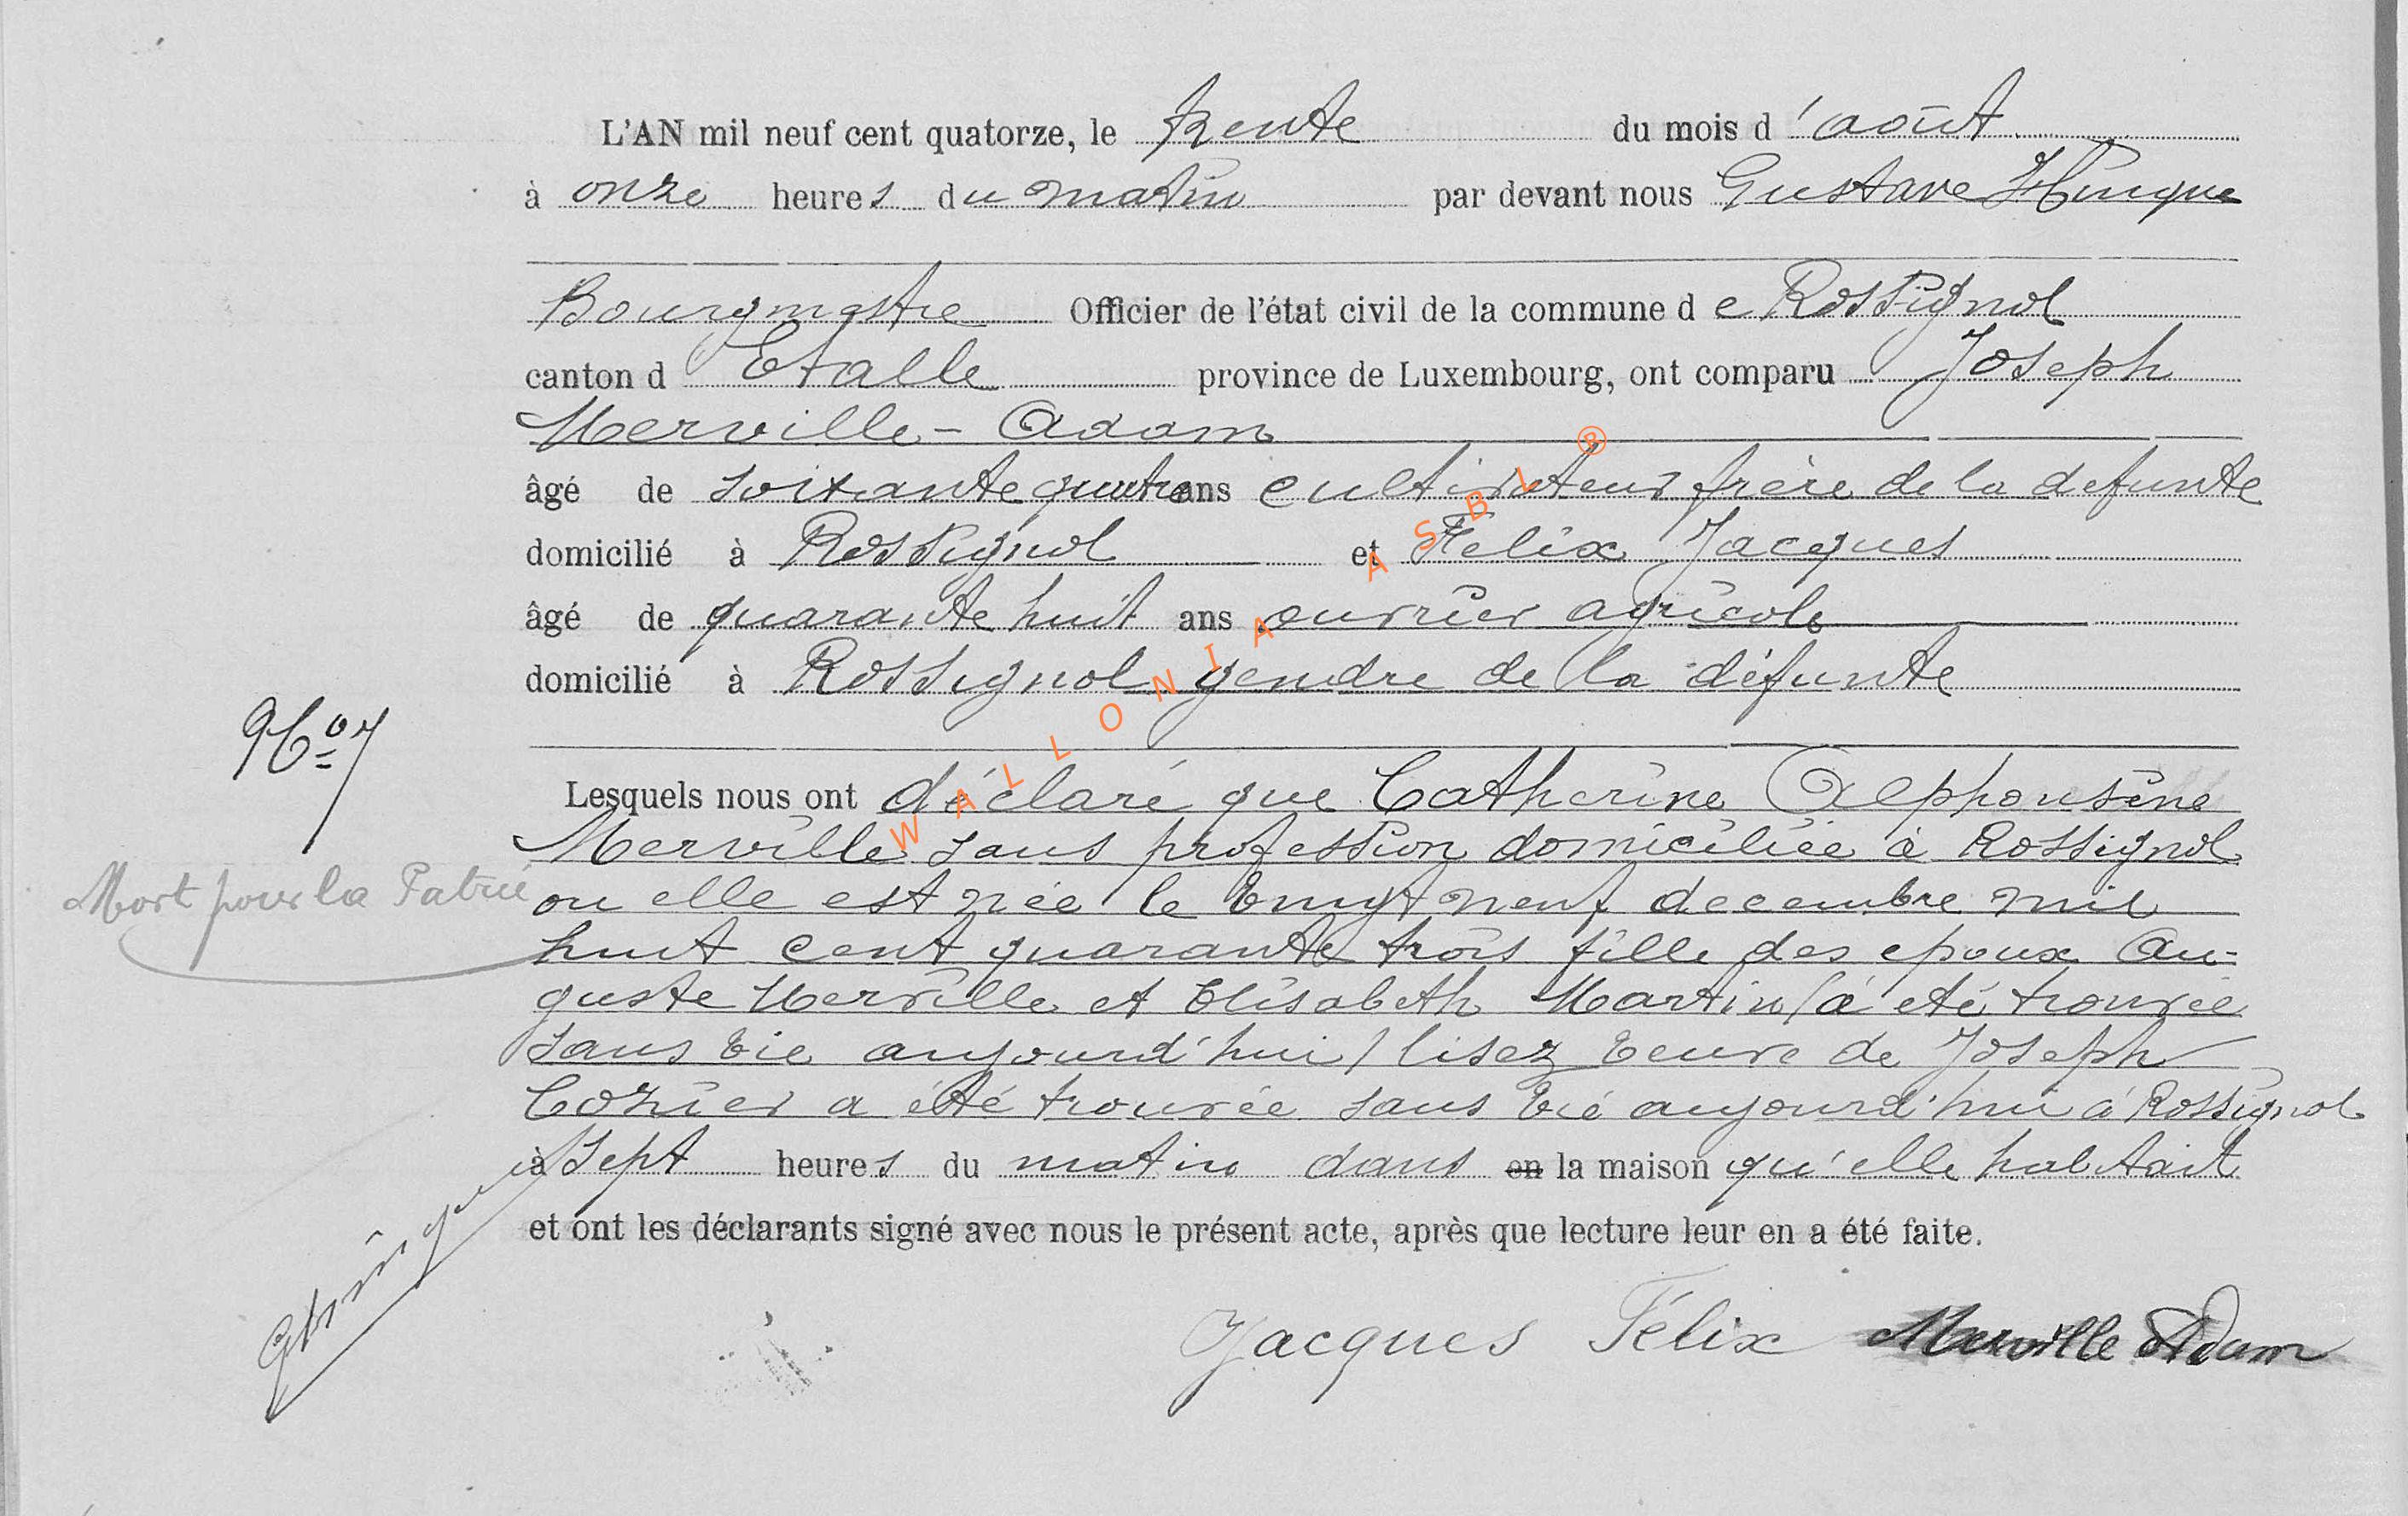 L'AN mil neuf cent quatorze, le trente du mois d'août
à onze heures du matin par devant nous Gustave Hinque
Bourgmestre Officier de l'état civil de la commune de Rossignol
canton d Etalle province de Luxembourg, ont comparu Joseph
Merville - Adam
âgé de soixante quatre ans cultivateur frère de la defunte
domicilié à Rossignol et Félix Jacques
âgé de quarante huit ans ouvrier agricole
domicilié à Rossignol gendre de la défunte
No 7
Lesquels nous ont déclaré que Catherine Alphonsine
Merville sans profession domiciliée à Rossignol
Mort pour la Patrie
ou elle est née le vingt neuf decembre mil
huit cent quarante trois fille des epoux Au-
guste Merville et Elisabeth Martin (a été trouvée
sans vie aujourd'hui) lisez veuve de Joseph
Cozier a été trouvée sans vie aujourd'hui à Rossignol
à sept heures du matin dans en la maison qu'elle habitait
et ont les déclarants signé avec nous le présent acte, après que lecture leur en a été faite.
GHinque
Jacques Félix Merville Adam
WALLONIA ASBL ®